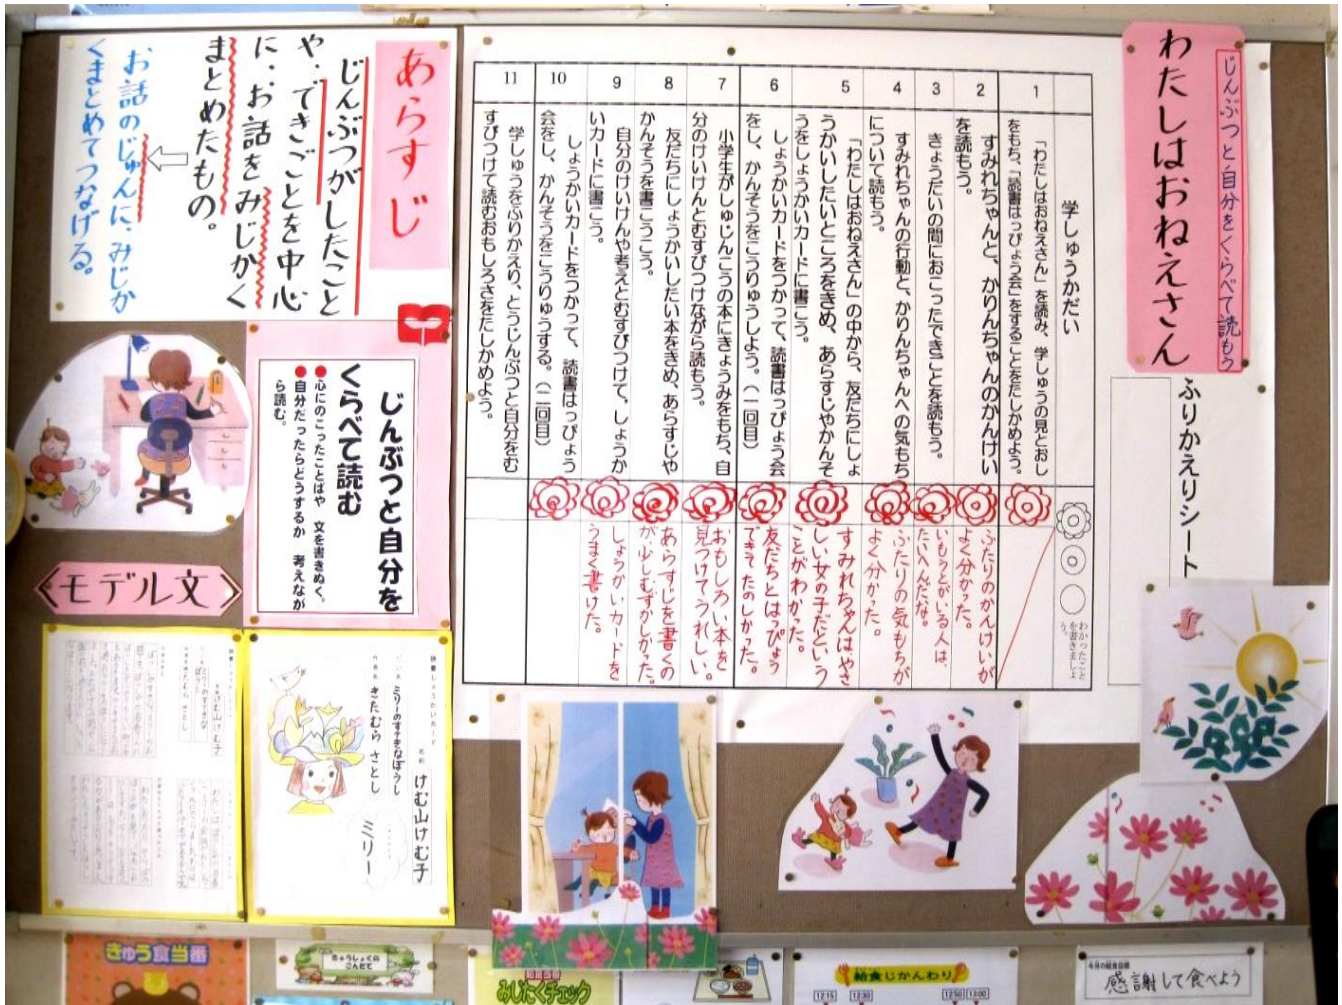 じんぶつと自分をくらべて読もう
わたしはおねえさん
ふりかえりシート
学しゅうかだい
わかったこと
を書きましょ
う。
1
「わたしはおねえさん」を読み、学しゅうの見とおし
をもち、「読書はっぴょう会」をすることをたしかめよう。
2
すみれちゃんと、かりんちゃんのかんけい
を読もう。
ふたりのかんけいが
よく分かった。
3
きょうだいの間におこったできごとを読もう。
いもうとがいる人は、
たいへんだな。
4
すみれちゃんの行動と、かりんちゃんへの気もち
について読もう。
ふたりの気もちが
よく分かった。
5
「わたしはおねえさん」の中から、友だちにしょ
うかいしたいところをきめ、あらすじやかんそ
うをしょうかいカードに書こう。
すみれちゃんは、やさ
しい女の子だという
ことがわかった。
6
しょうかいカードをつかって、読書はっぴょう会
をし、かんそうをこうりゅうしよう。(一回目)
友だちとはっぴょう
できてたのしかった。
7
小学生がしゅじんこうの本にきょうみをもち、自
分のけいけんとむすびつけながら読もう。
おもしろい本を
見つけてうれしい。
8
友だちにしょうかいしたい本をきめ、あらすじや
かんそうを書こうこう。
あらすじを書くの
が、少しむずかしかった。
9
自分のけいけんや考えとむすびつけて、しょうか
いカードに書こう。
しょうかいカードを
うまく書けた。
10
しょうかいカードをつかって、読書はっぴょう
会をし、かんそうをこうりゅうする。(二回目)
11
学しゅうをふりかえり、とうじんぶつと自分をむ
すびつけて読むおもしろさをたしかめよう。
あらすじ
じんぶつがしたこと
や、できごとを中心
に、お話をみじかく
まとめたもの。
お話のじゅんに、みじか
くまとめてつなげる。
じんぶつと自分を
くらべて読む
●心にのこったことばや 文を書きぬく。
●自分だったらどうするか 考えなが
ら読む。
モデル文
けむ山けむ子
ミリーのすてきなぼうし
きたむら さとし
ミリー
きゅう食当番
きゅうしょくの
こんだて
給食当番
みじたくチェック
給食じかんわり
12:15
12:30
12:50
13:00
今月の給食目標
感謝して食べよう